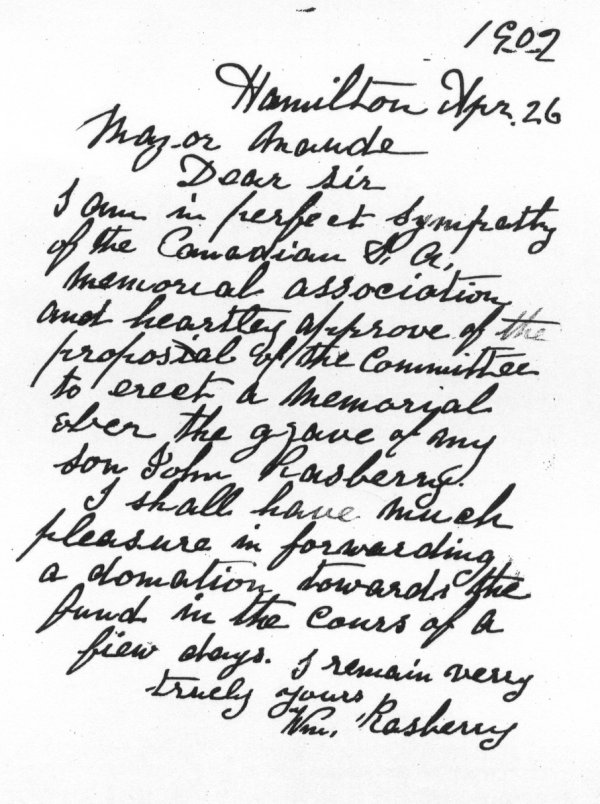 1902
Hamilton Apr. 26
Major Maude
Dear Sir
I am in perfect sympathy
of the Canadian S. A.
memorial association
and heartley approve of the
proposial of the Committee
to erect a memorial
over the grave of my
son John Rasberry.
I shall have much
pleasure in forwarding
a donation towards the
fund in the cours of a
fiew days. I remain verry
truely yours
Wm. Rasberry